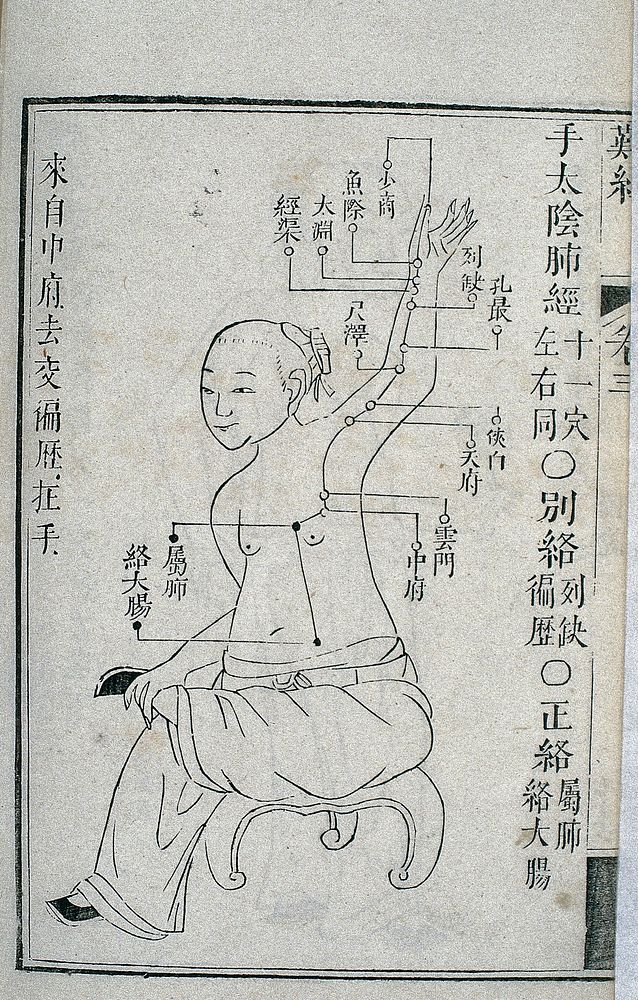 難經
卷三
手太陰肺經十一穴左右同〇別絡列缺徧歷〇正絡屬肺絡大腸
少商
魚際
太淵
經渠
列缺
孔最
尺澤
俠白
天府
雲門
中府
屬肺
絡大腸
來自中府去交徧歷在手